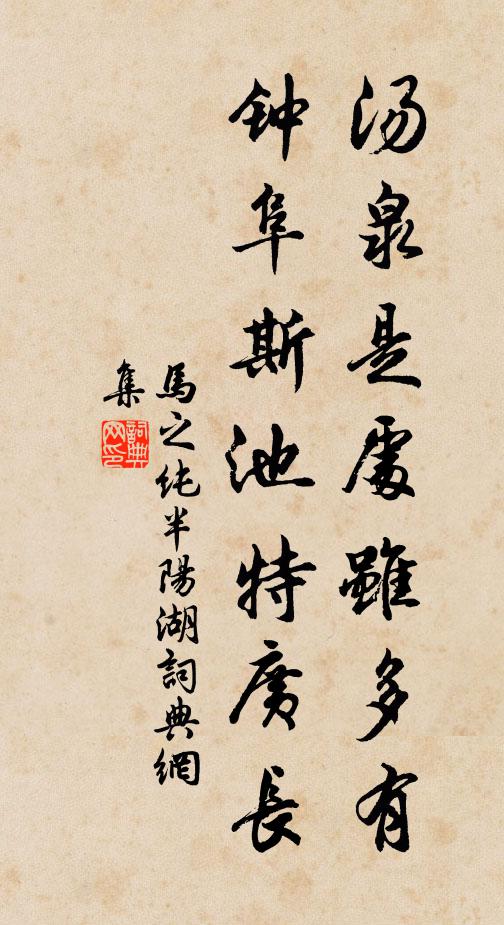 汤泉是處雖多有
钟阜斯池特廣長
馬之純半陽湖詞典網
集
詞典
网印